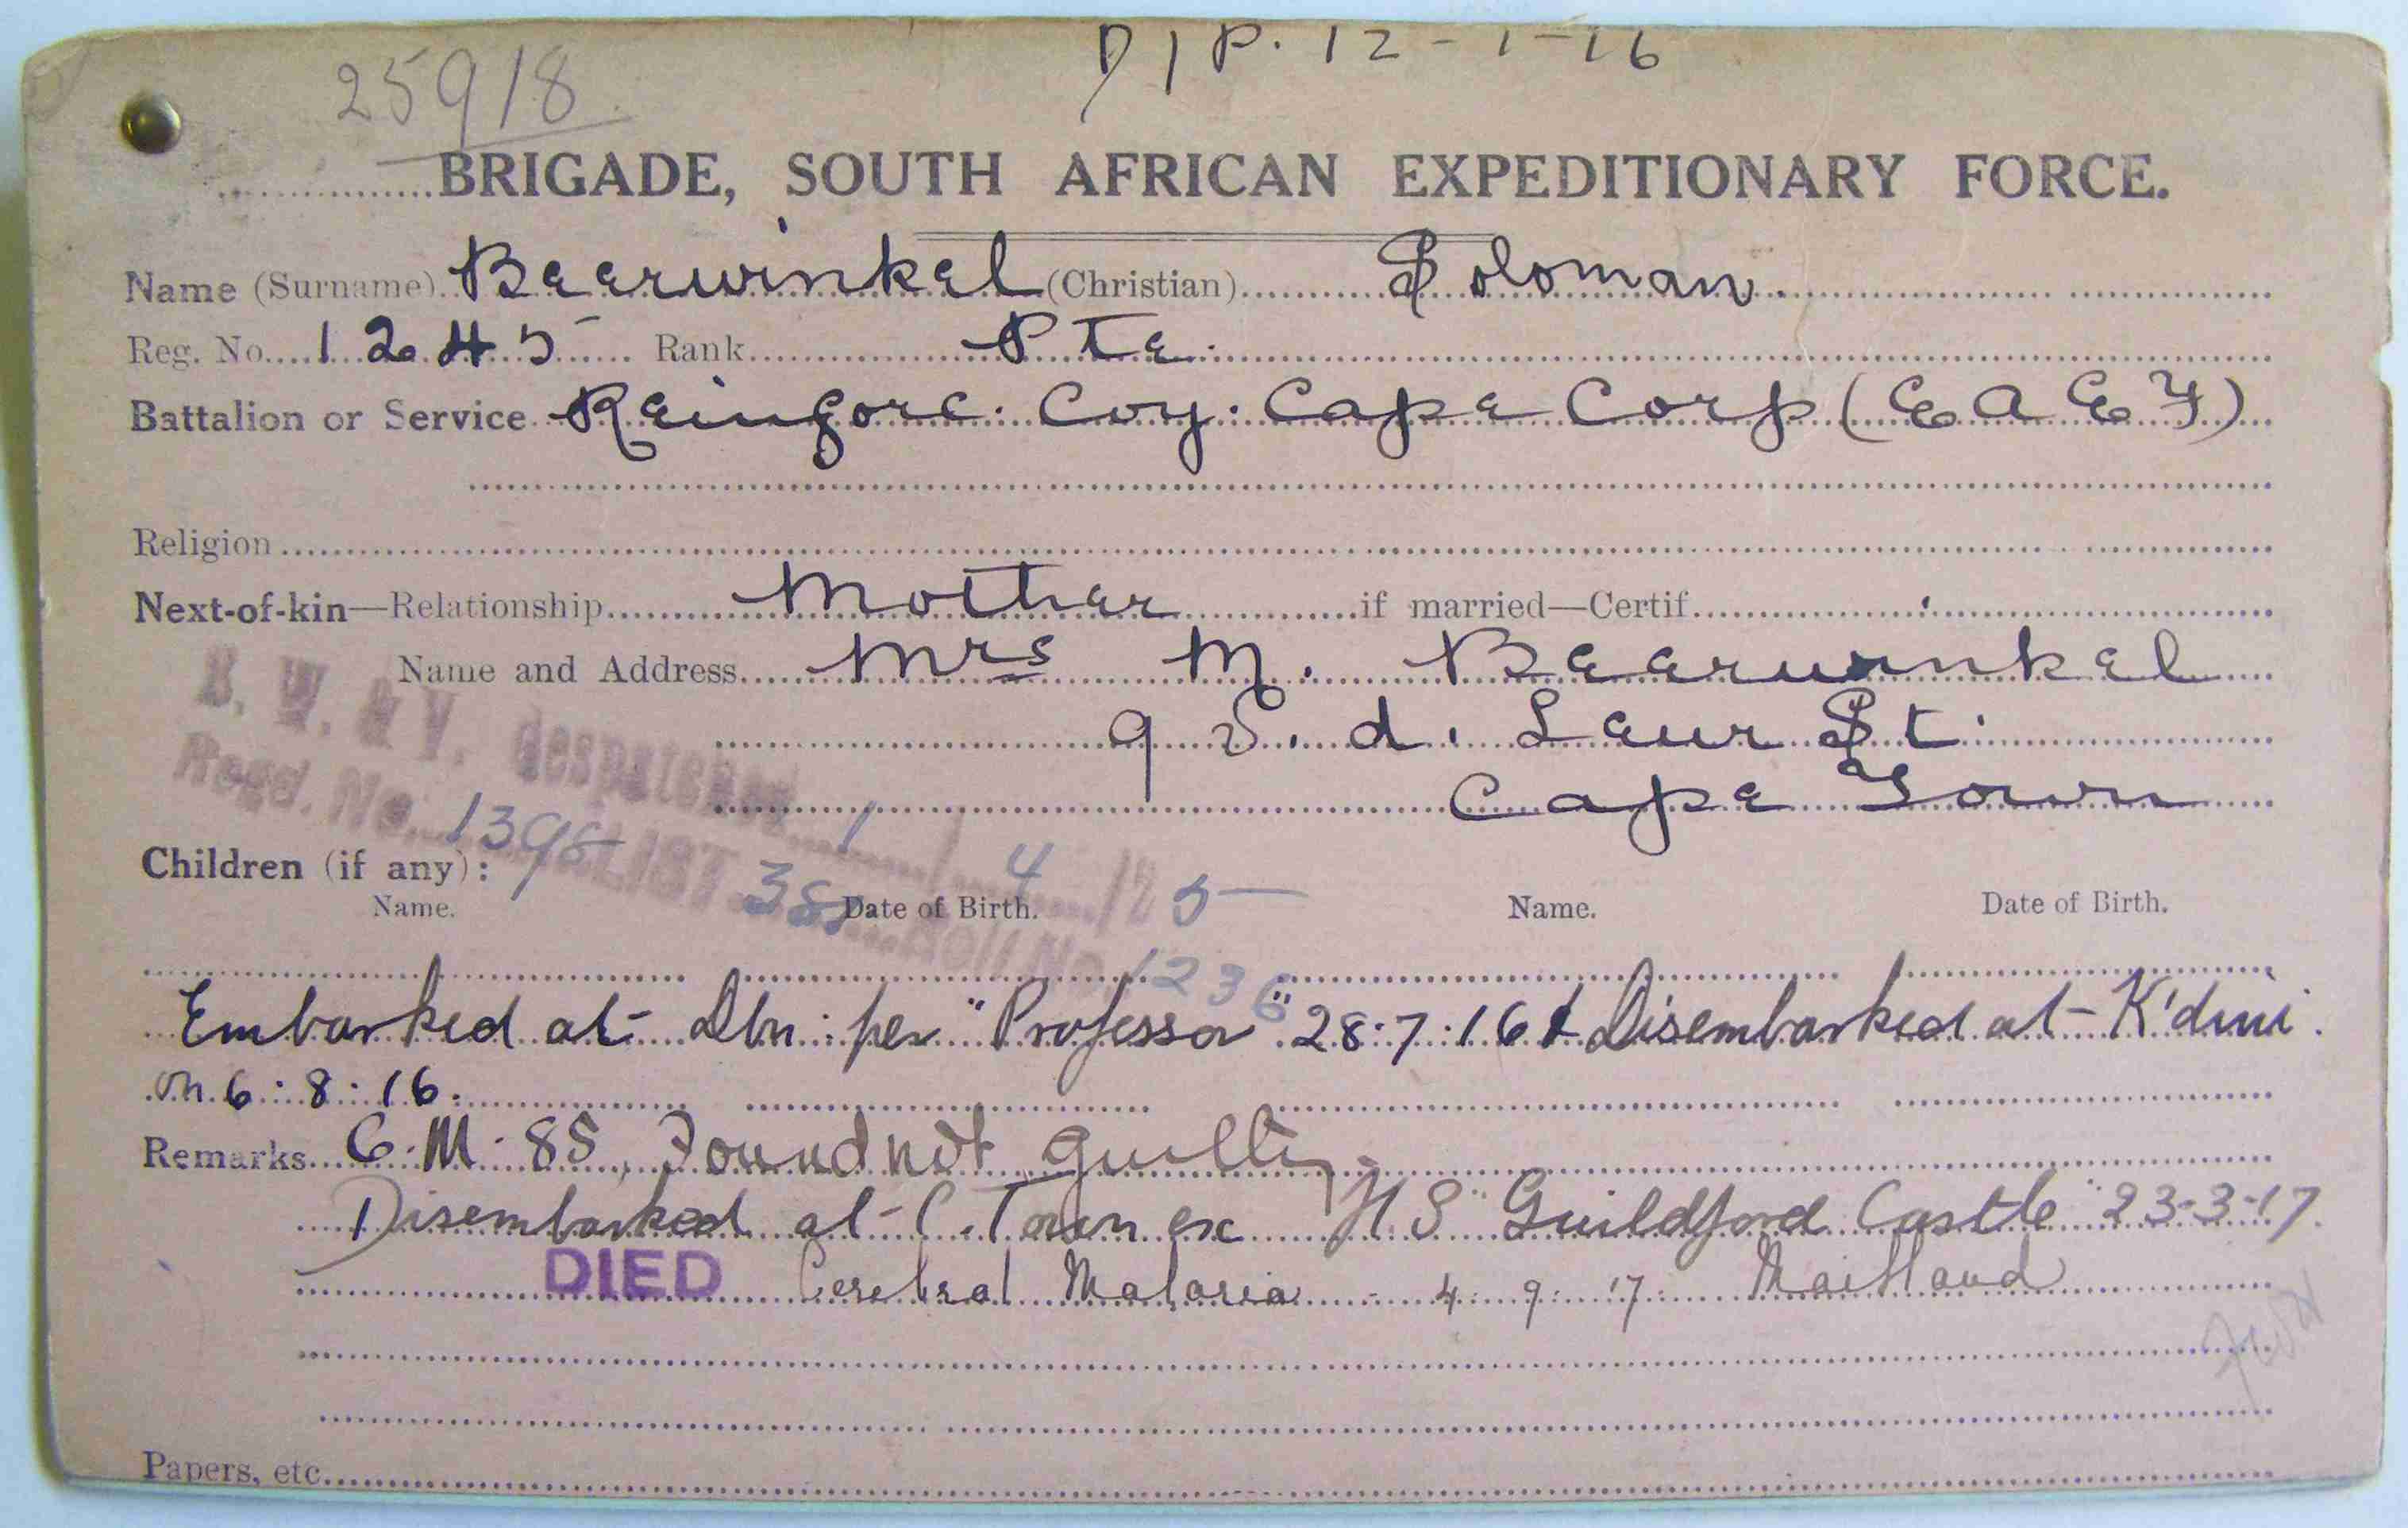 25918
D/P. 12-1-16
BRIGADE, SOUTH AFRICAN EXPEDITIONARY FORCE.
Name (Surname) Beerwinkel (Christian) Soloman
Reg. No. 1245 Rank Pte.
Battalion or Service Reinforc: Coy: Cape Corp (E A E F)
Religion
Next-of-kin—Relationship Mother if married—Certif.
Name and Address Mrs M. Beerwinkel
9 V. d. Leur St.
Cape Town
B. W. & V. despatched 1/4/25
Regd. No. 1395 LIST 38 Roll No. 1236
Children (if any):
Name. Date of Birth. Name. Date of Birth.
Embarked at Dbn: per "Professor" 28:7:16 & Disembarked at K'dini.
on 6:8:16.
Remarks C.M. 85, Found not guilty.
Disembarked at C. Town ex H.S "Guildford Castle" 23-3-17.
DIED Cerebral Malaria - 4. 9. 17. Maitland
Papers, etc.